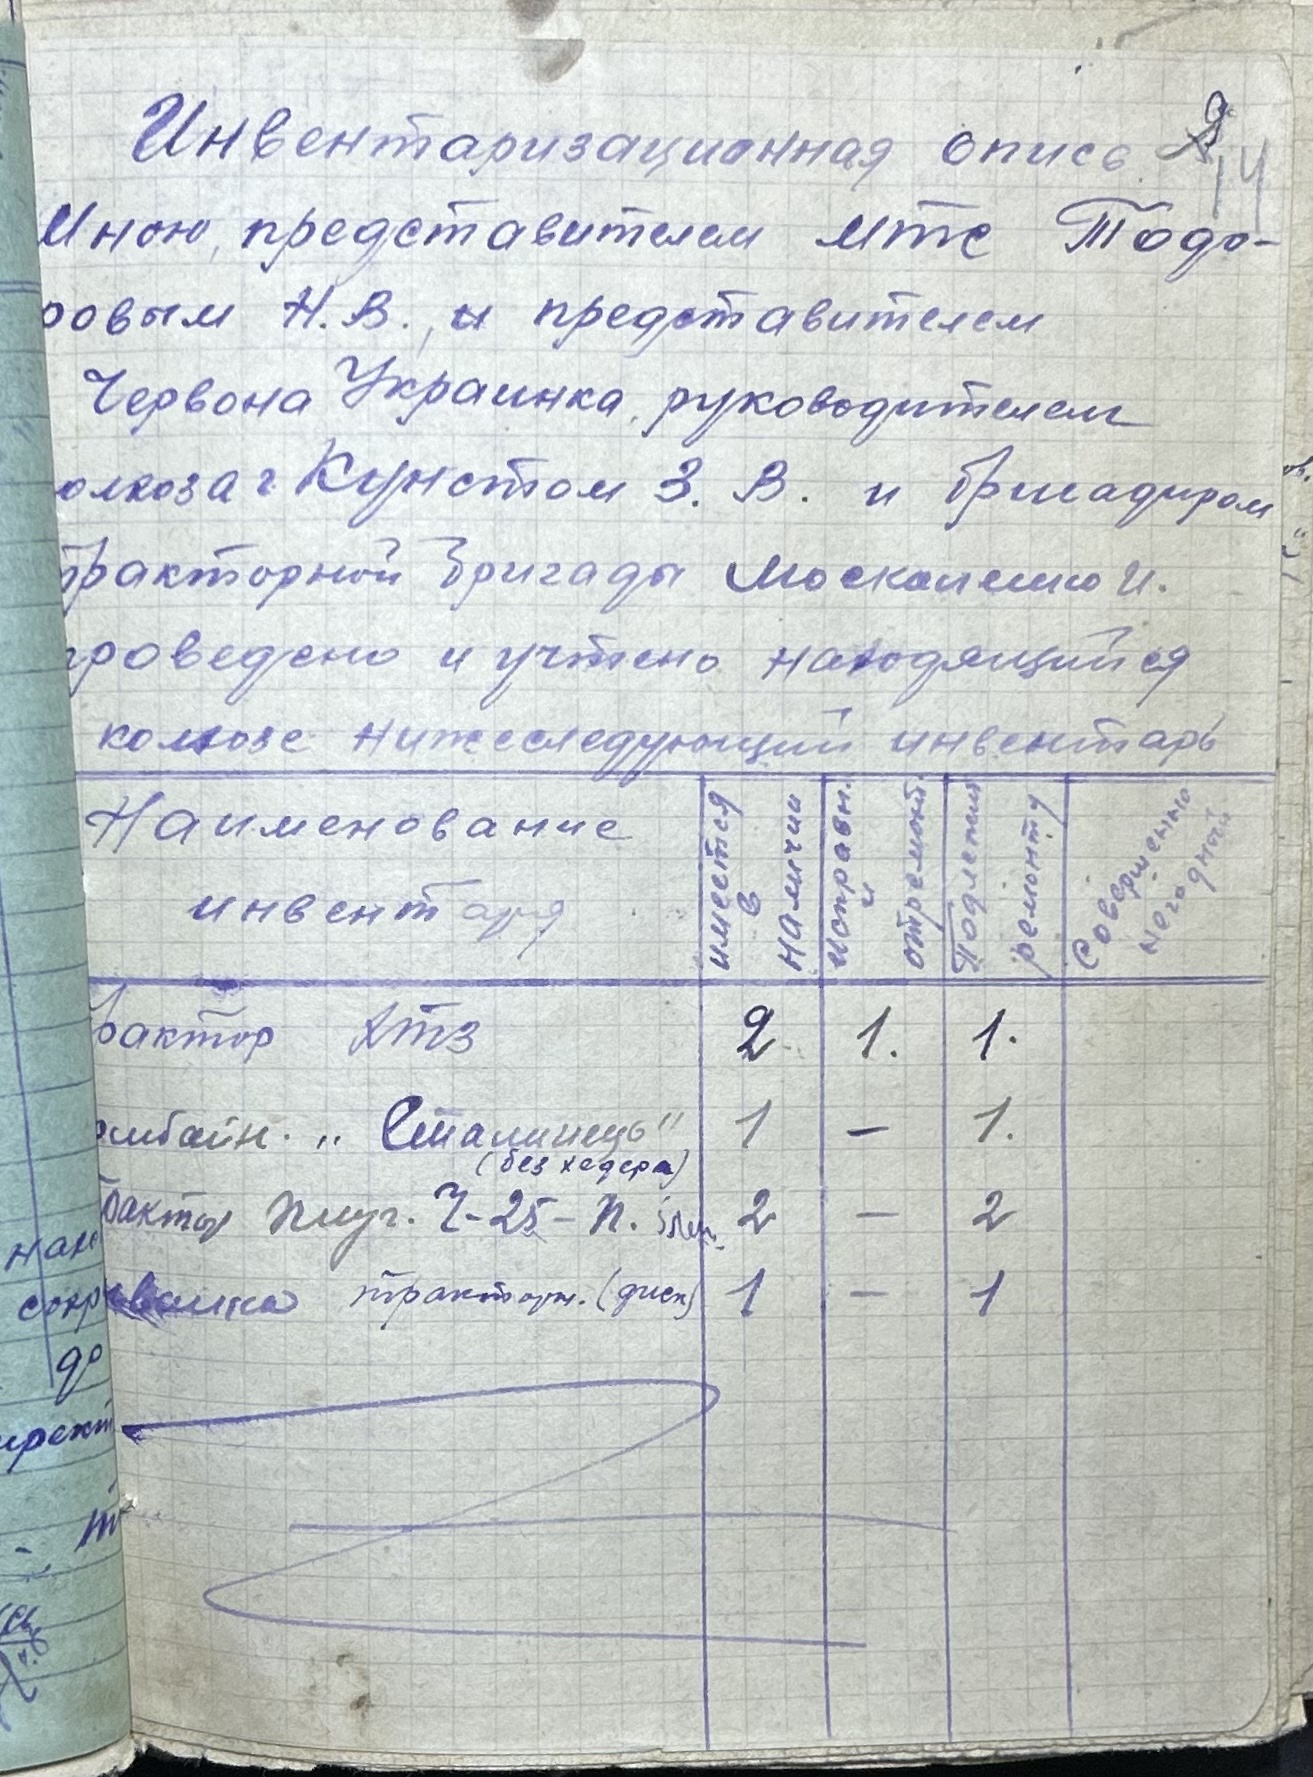 Инвентаризационная опись
14
Мною, представителем МТС Тодо-
ровым Н.В., и представителем
Червона Украинка, руководителем
олхоза г Кунстом З. В. и бригадиром
тракторной бригады Москаленко И.
проведено и учтено находящийся
колхозе нижеследующий инвентарь
Наименование инвентаря
имеется в наличии
исправн. и отремонт.
Подлежит ремонту
Совершенно негодный
рактор ХТЗ 2 1. 1.
омбайн. „ Сталинець" 1 – 1.
(без хедера)
рактор плуг. 2 – 2
тракторн. (диск) 1 – 1